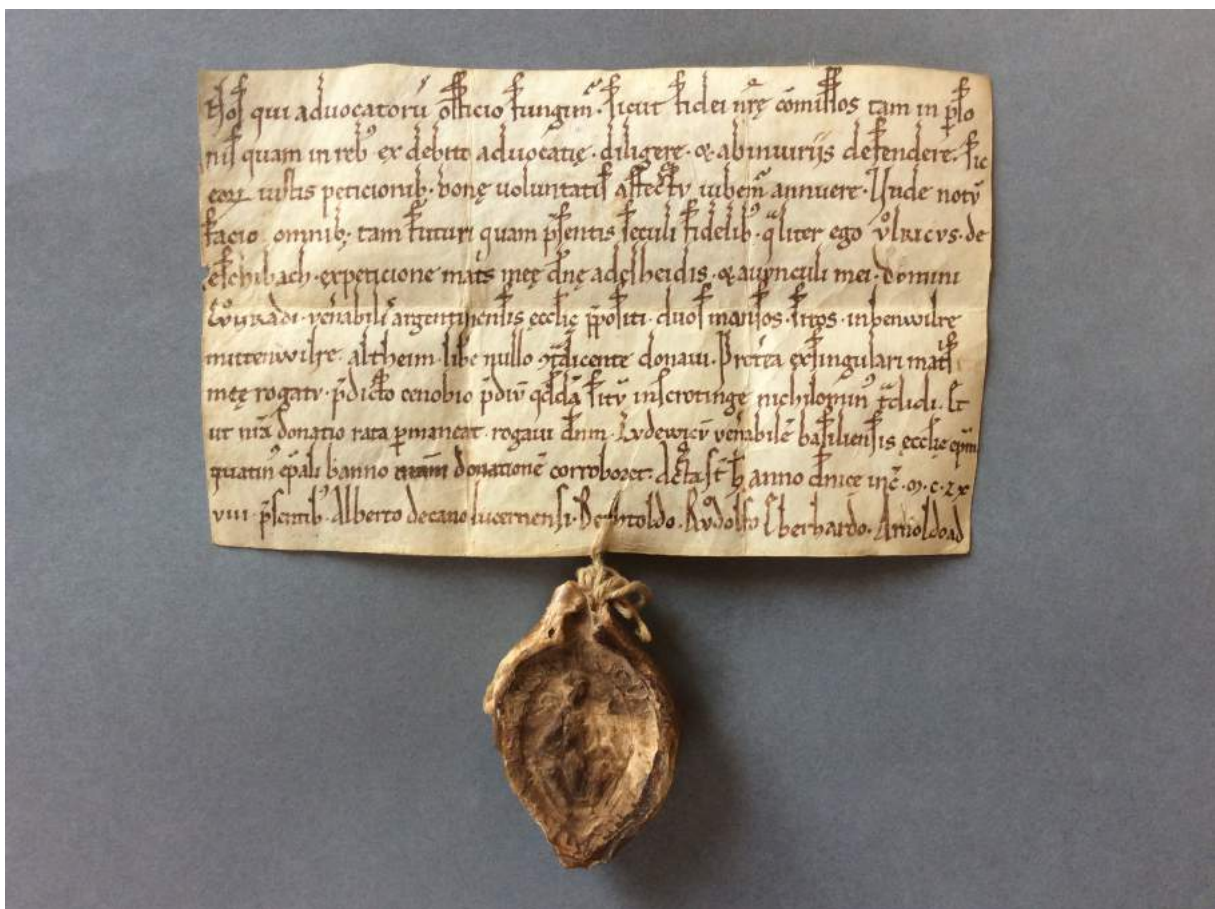 Nos qui advocatorū officio fungim᷑. sicut fidei nr̄ę cōmissos tam in pſo
nis quam in reb᷒ ex debito advocatię. diligere. & abiniuriis defendere. sic
eoꝝ iustis peticionib᷒. bonę uoluntatis affectu iubem᷒ annuere. Unde notū
facio omnib᷒. tam futuri quam p̄sentis seculi fidelib᷒. qͣliter ego vͦlricvs. de
eschibach. expeticione mat̄s meę dn̄ę adelheidis. & auunculi mei. domini
venabil̄ argentinensis ecclę p̄positi. duos mansos. sitos. inbenwilre
mittenwilre. altheim. libe nullo ꝯt̄dicente donaui. Pret̄ea ex singulari mat̄s
meę rogatu. p̄dicto cenobio p̄diū qd̄dā sitū inscrotinge nichilomin᷒ t̄didi. Et
ut donatio rata ꝑmaneat. rogaui dn̄m. Lvdewicū ven̄abilē basiliensis ecclę ep̄m
quatin᷒ ep̄ali banno donationē corroboret. anno dn̄ice inc̄. M.C.LX
VIII. p̄sentib᷒. Alberto decano lucernensi. Berhtoldo. Rvͦdolfo Eberhardo. Arnoldo ad